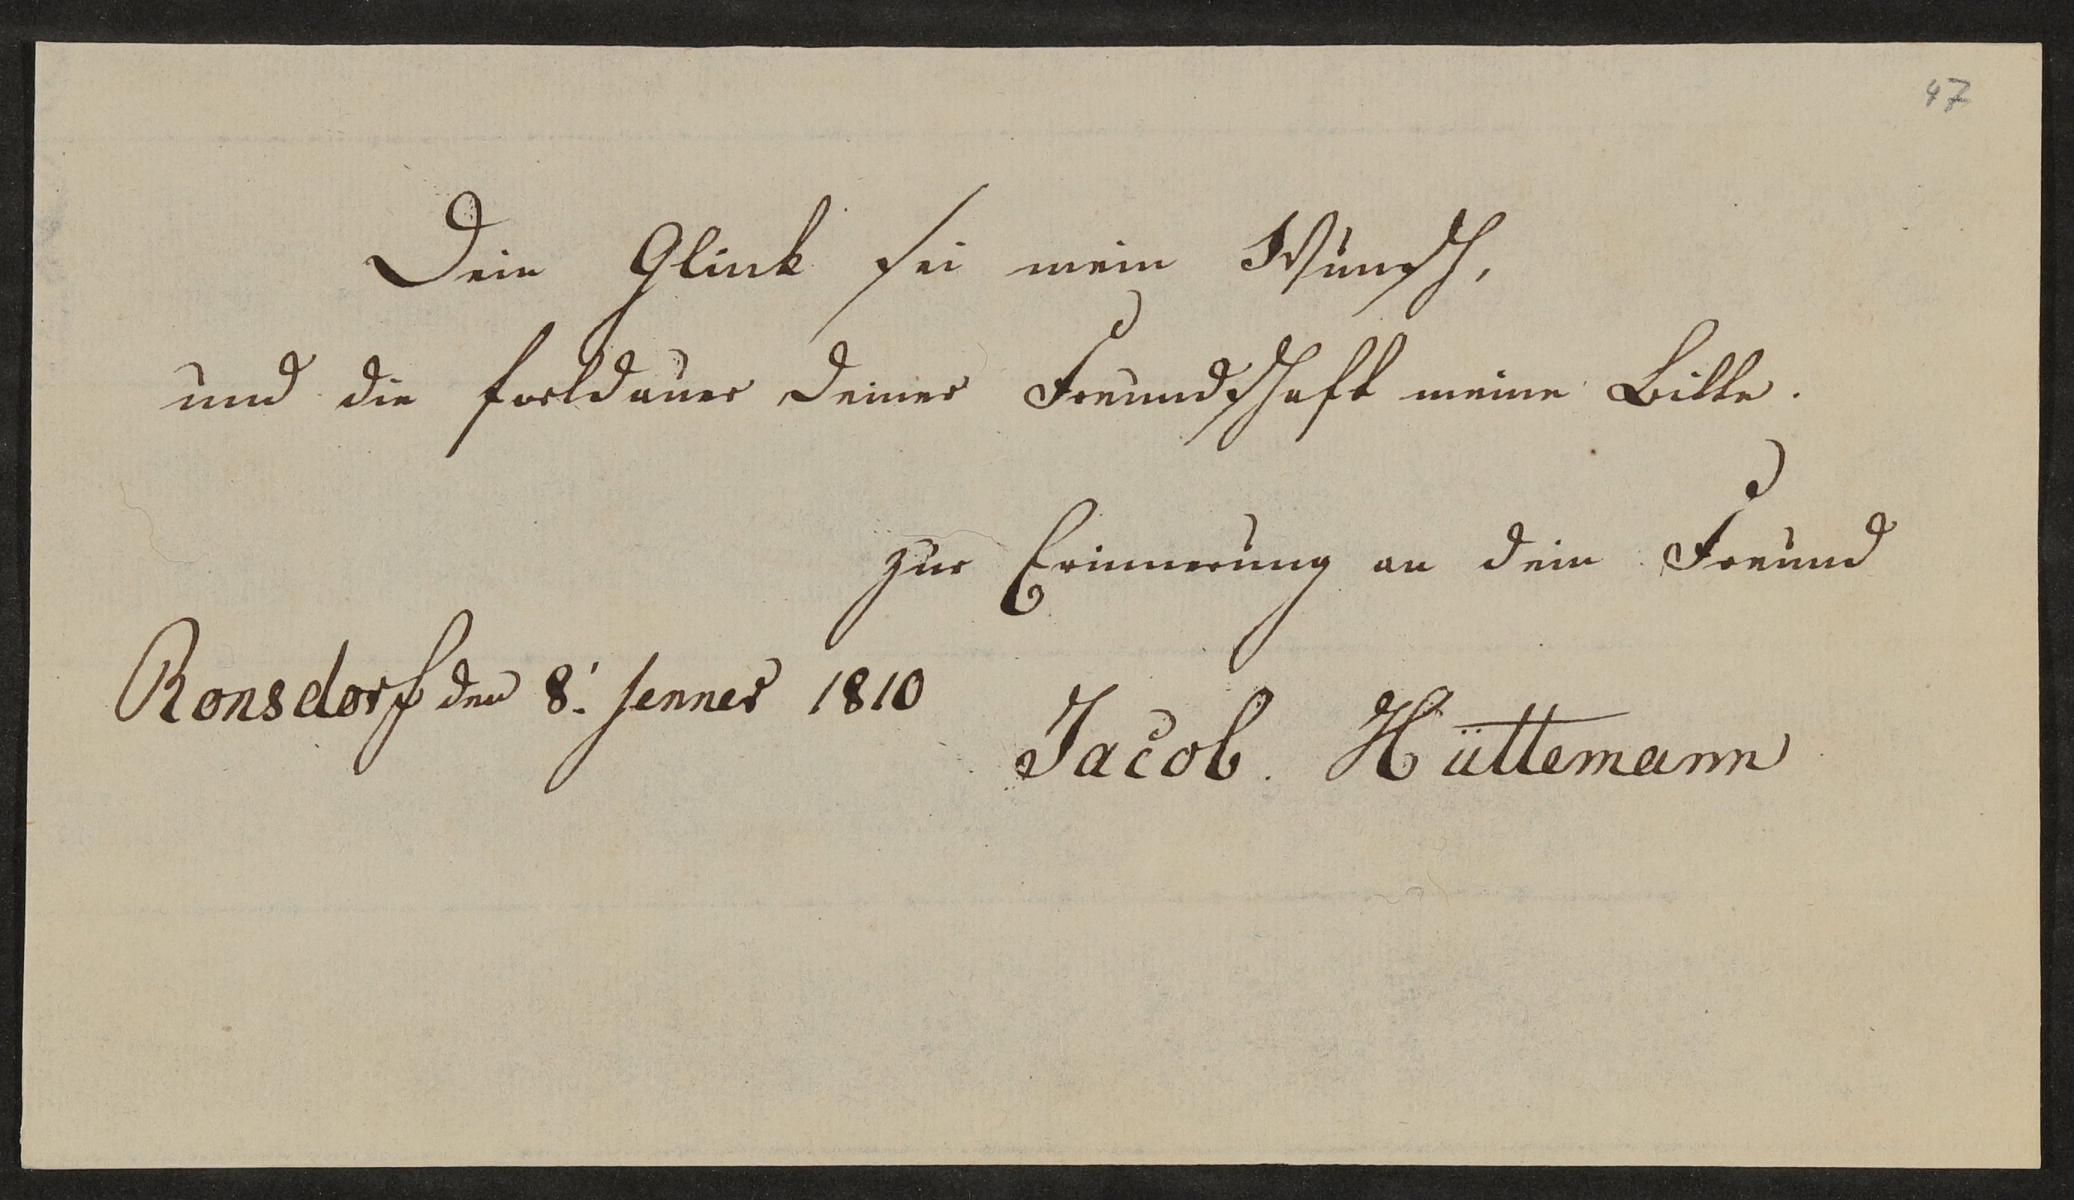 47
Dein Glück sei mein Wunsch,
und die fortdauer Deiner Freundschaft meine Bitte.
zur Erinnerung an dein Freund
Ronsdorf den 8: Jenner 1810
Jacob. Hüttemann